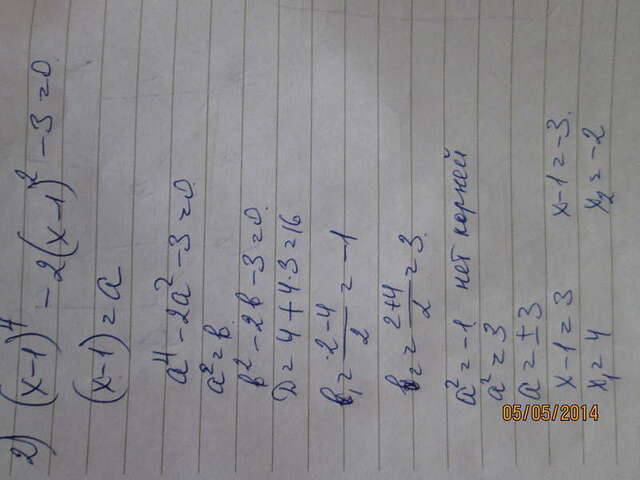 2) (x-1)⁴ - 2(x-1)² - 3 = 0
(x-1) = a
a⁴ - 2a² - 3 = 0
a² = b
b² - 2b - 3 = 0
D = 4 + 4·3 = 16
b₁ = (2-4)/2 = -1
b₂ = (2+4)/2 = 3
a² = -1 нет корней
a² = 3
a = ±3
x-1 = 3 x-1 = -3
x₁ = 4 x₂ = -2
05/05/2014